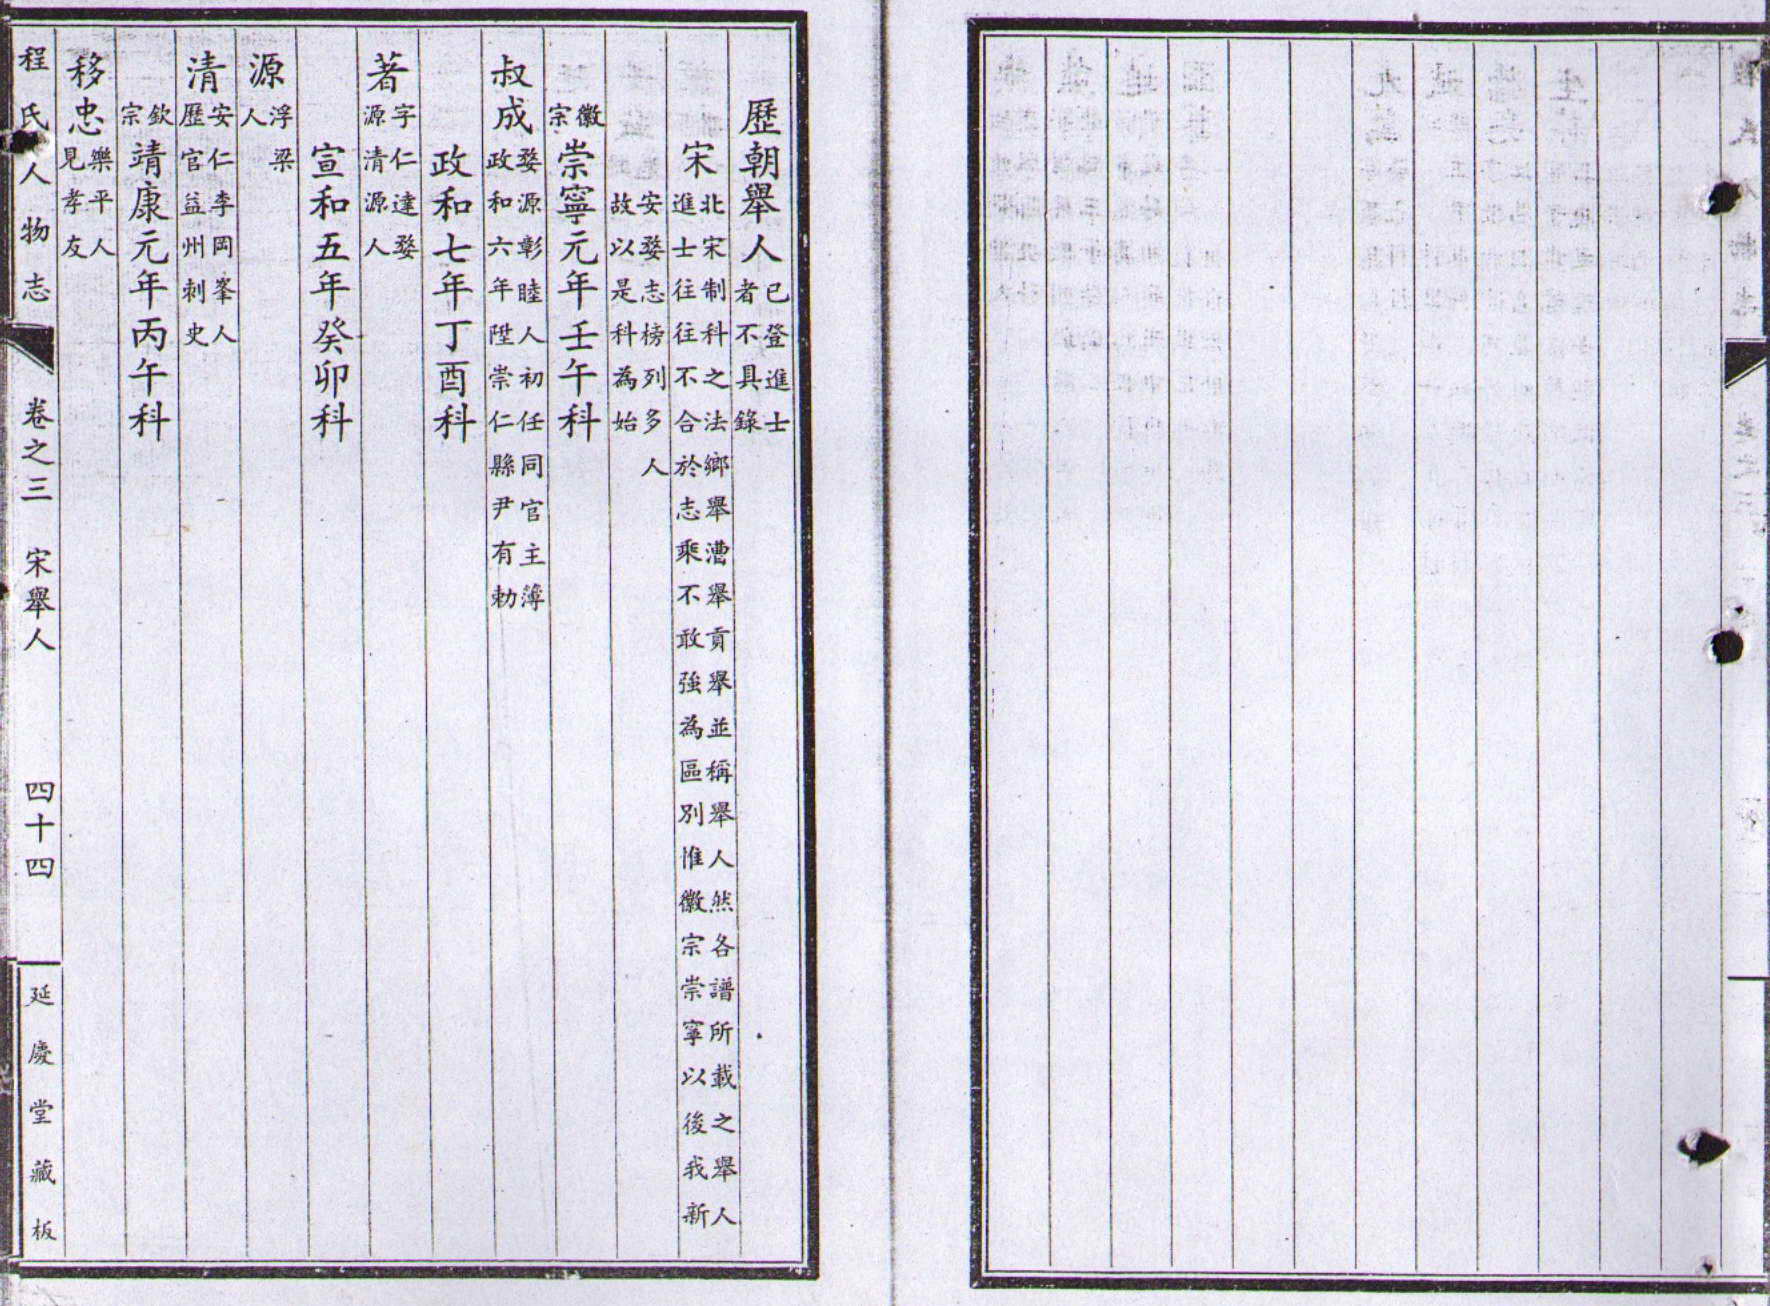 歷朝舉人 已登進士者不具錄
宋 北宋制科之法鄉舉漕舉貢舉並稱舉人然各譜所載之舉人進士往往不合於志乘不敢強為區別惟徽宗崇寧以後我新
安婺志榜列多人故以是科為始
徽宗崇寧元年壬午科
叔成 婺源彰睦人初任同官主簿政和六年陞崇仁縣尹有勅
政和七年丁酉科
著 字仁達婺源清源人
宣和五年癸卯科
源 浮梁人
清 安仁李岡峯人歷官益州刺史
欽宗靖康元年丙午科
移忠 樂平人見孝友
程氏人物志 卷之三 宋舉人 四十四 延慶堂藏板